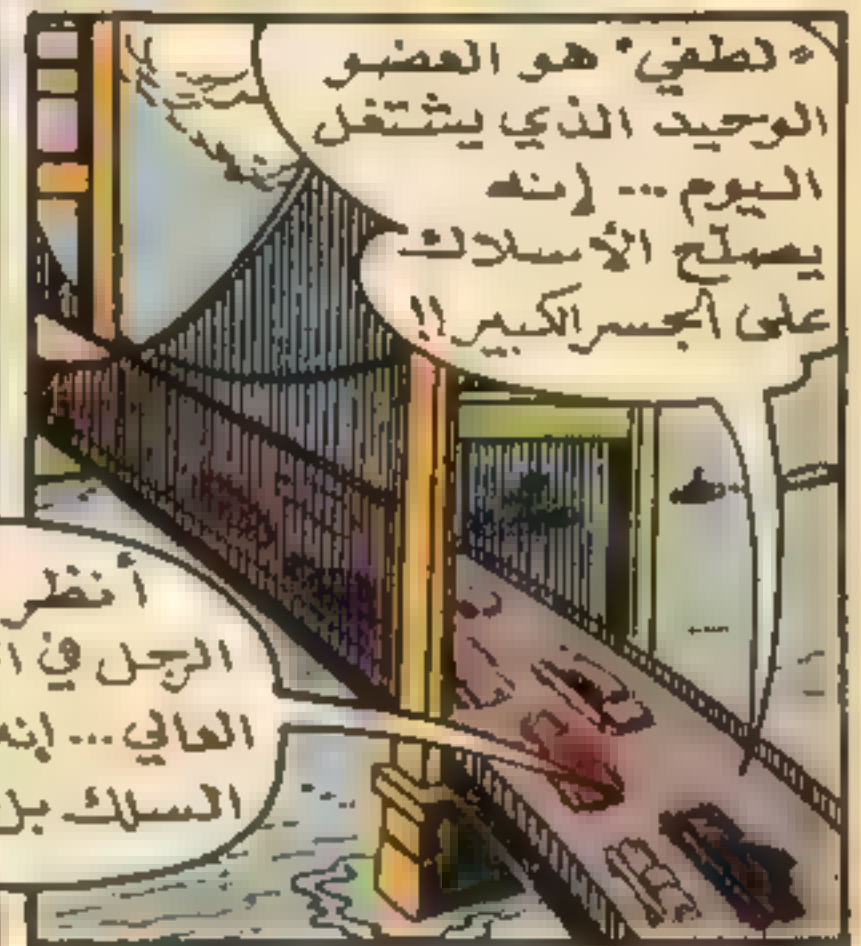 "لطفي" هو العضو
الوحيد الذي يشتغل
اليوم ... إنه
يصلح الأسلاك
على الجسر الكبير!!
أنظر
الرجل في
العالي ... إنه
السلك